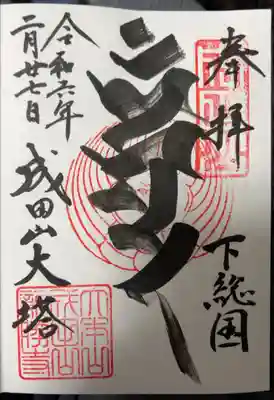 奉拝
下総国
成田山大塔
令和六年
二月廿七日
大本山
成田山
新勝寺